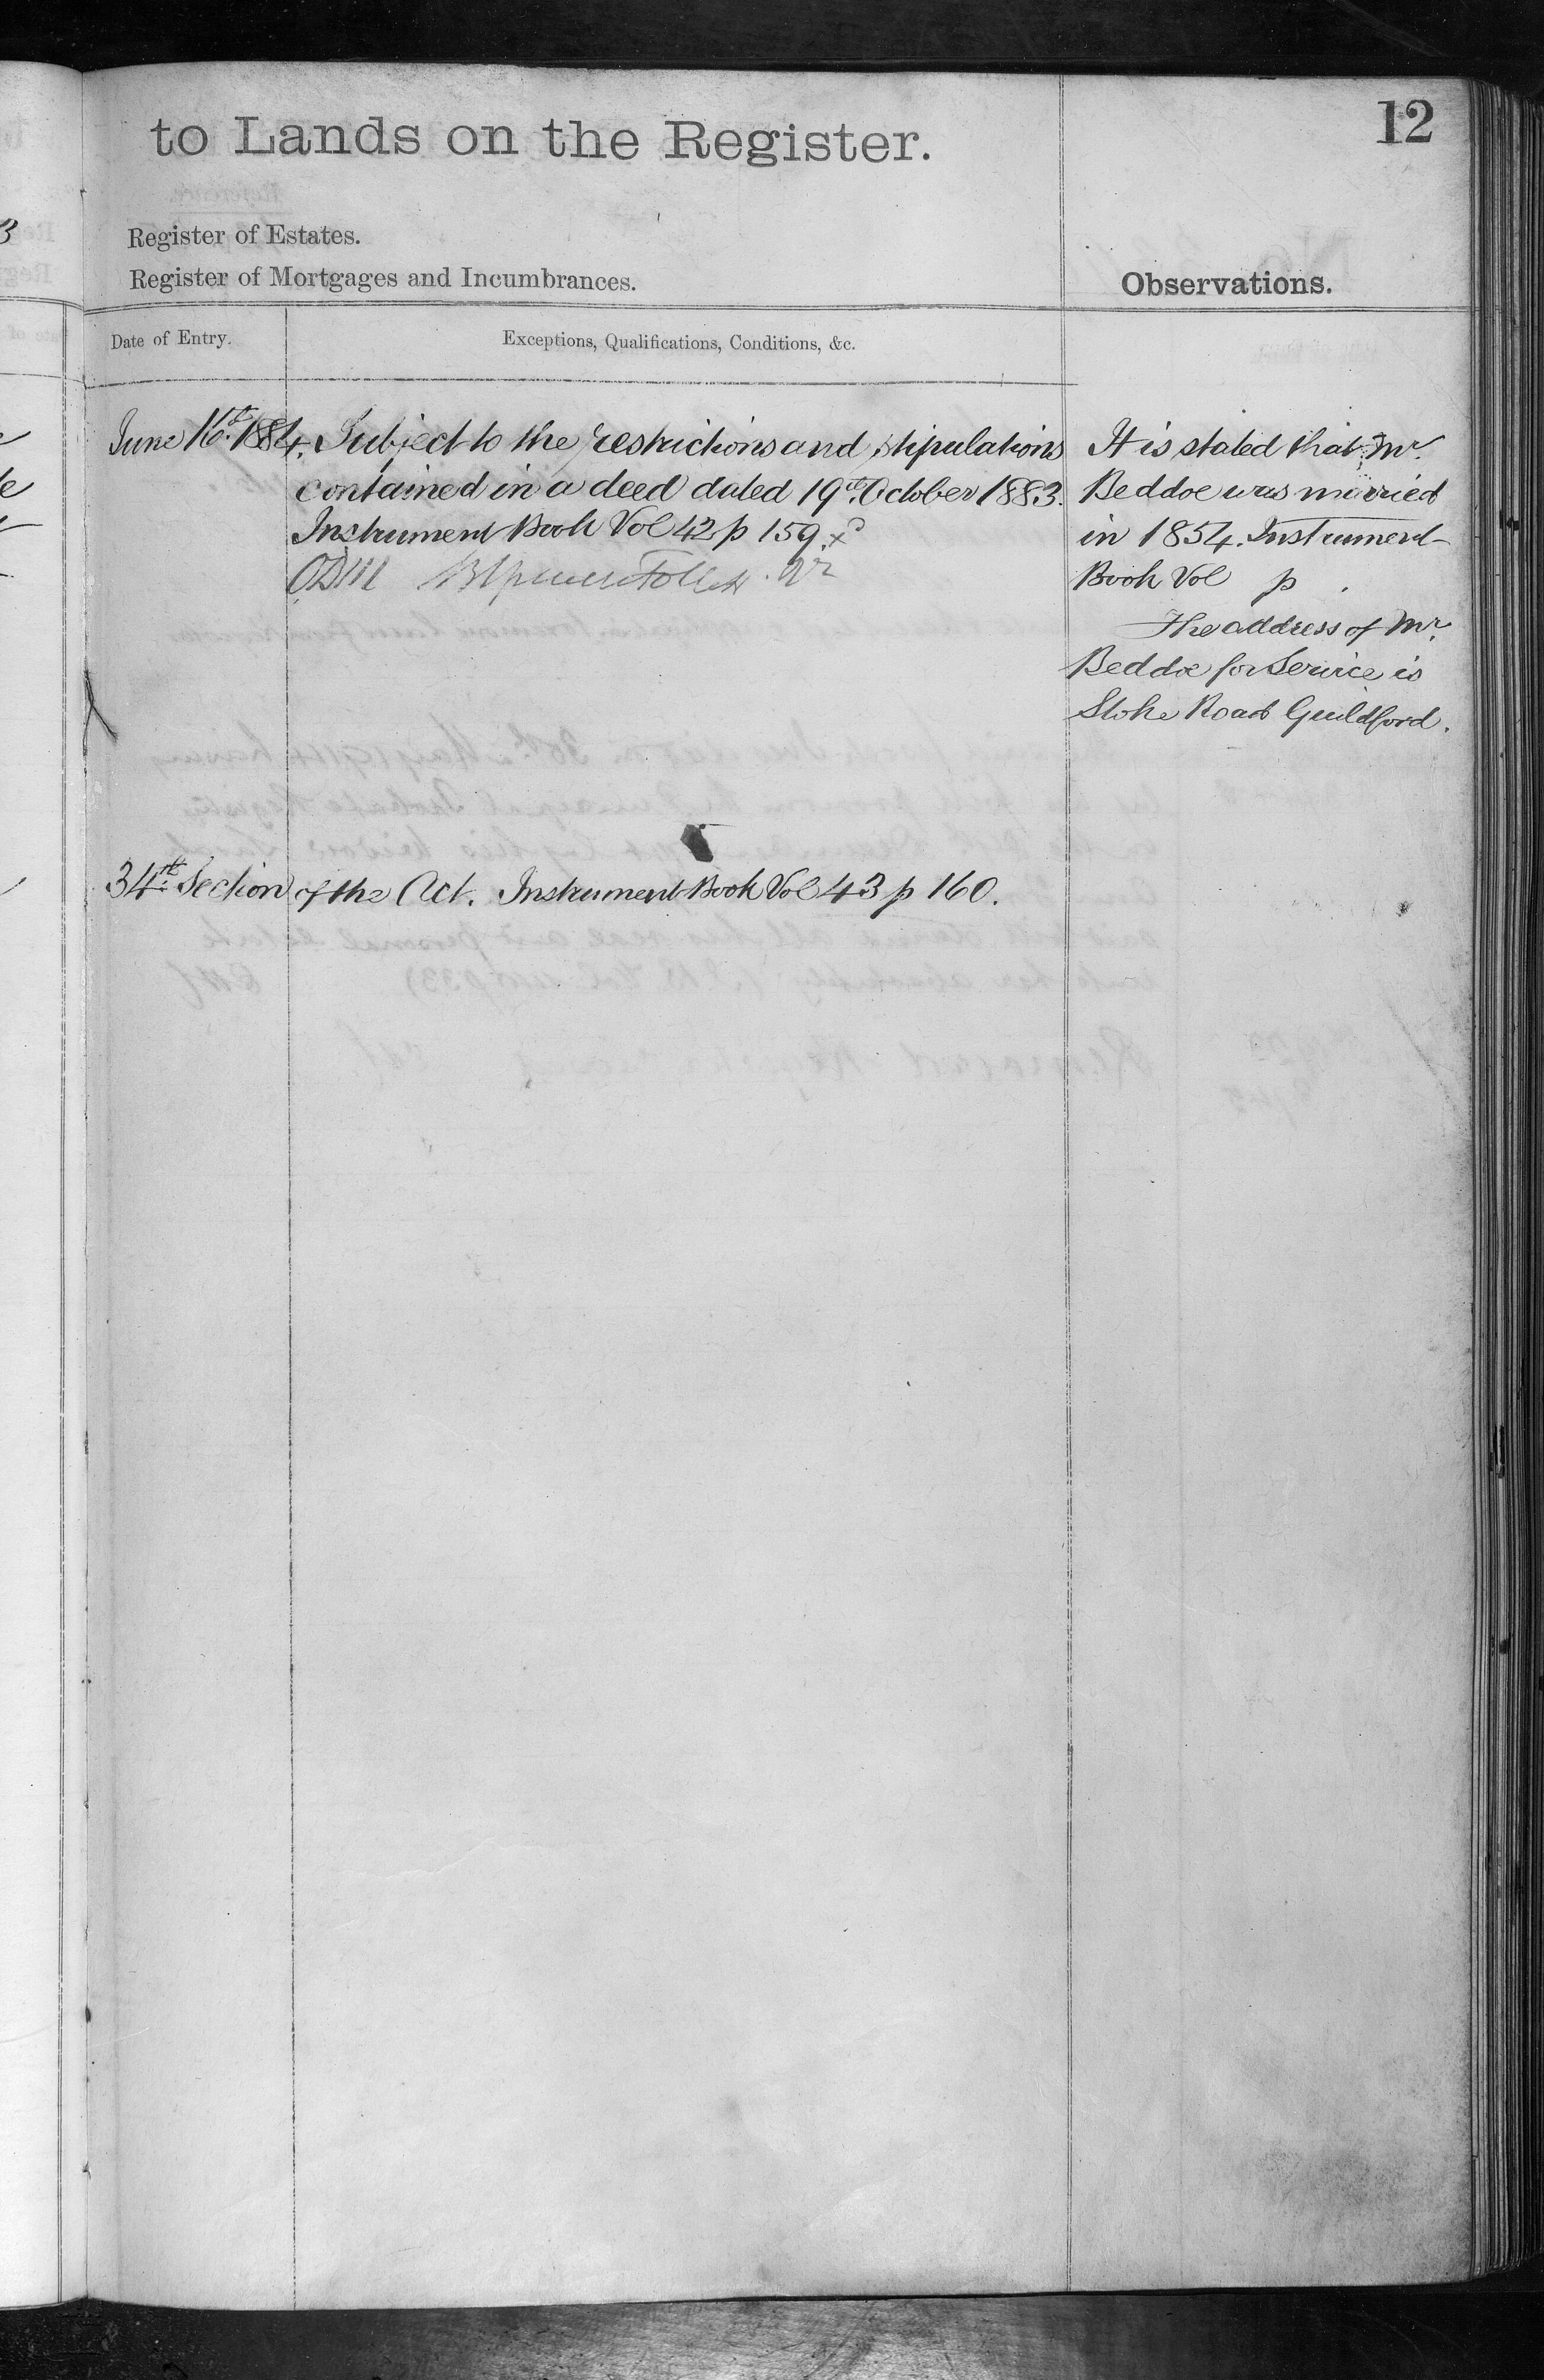 12
to Lands on the Register.
Register of Estates.
Register of Mortgages and Incumbrances.
Observations.
Date of Entry.
Exceptions, Qualifications, Conditions, &c.
June 16th 1884. Subject to the restrictions and stipulations
contained in a deed dated 19th October 1883.
Instrument Book Vol 42 p 159
It is stated that Mr.
Beddoe was married
in 1854. Instrument
Book Vol p .
The address of Mr.
Beddoe for Service is
Stoke Road Guildford.
34th Section of the Act. Instrument Book Vol 43 p 160.